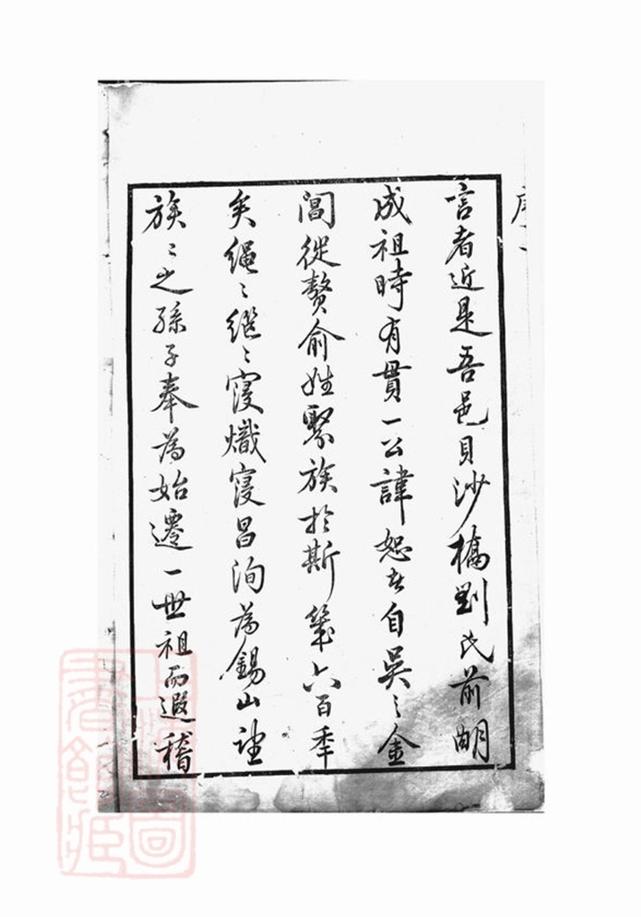 序
言者近是吾邑貝沙橋劉氏前明
成祖時有貫一公諱恕者自吳之金
閶從贅俞姓聚族於斯幾六百年
矣繩〻繼〻寖熾寖昌洵為錫山望
族〻之孫子奉為始遷一世祖而遐稽
上海圖書館藏